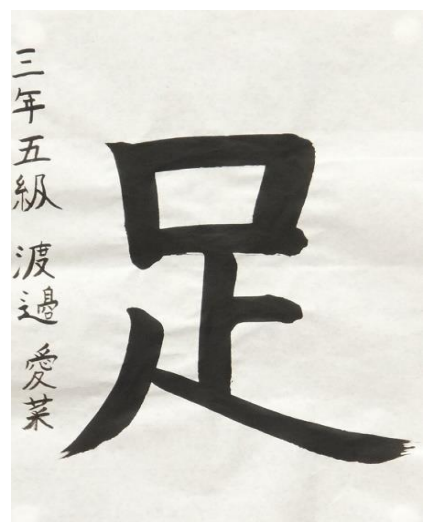 足
三年五級 渡邉 愛菜